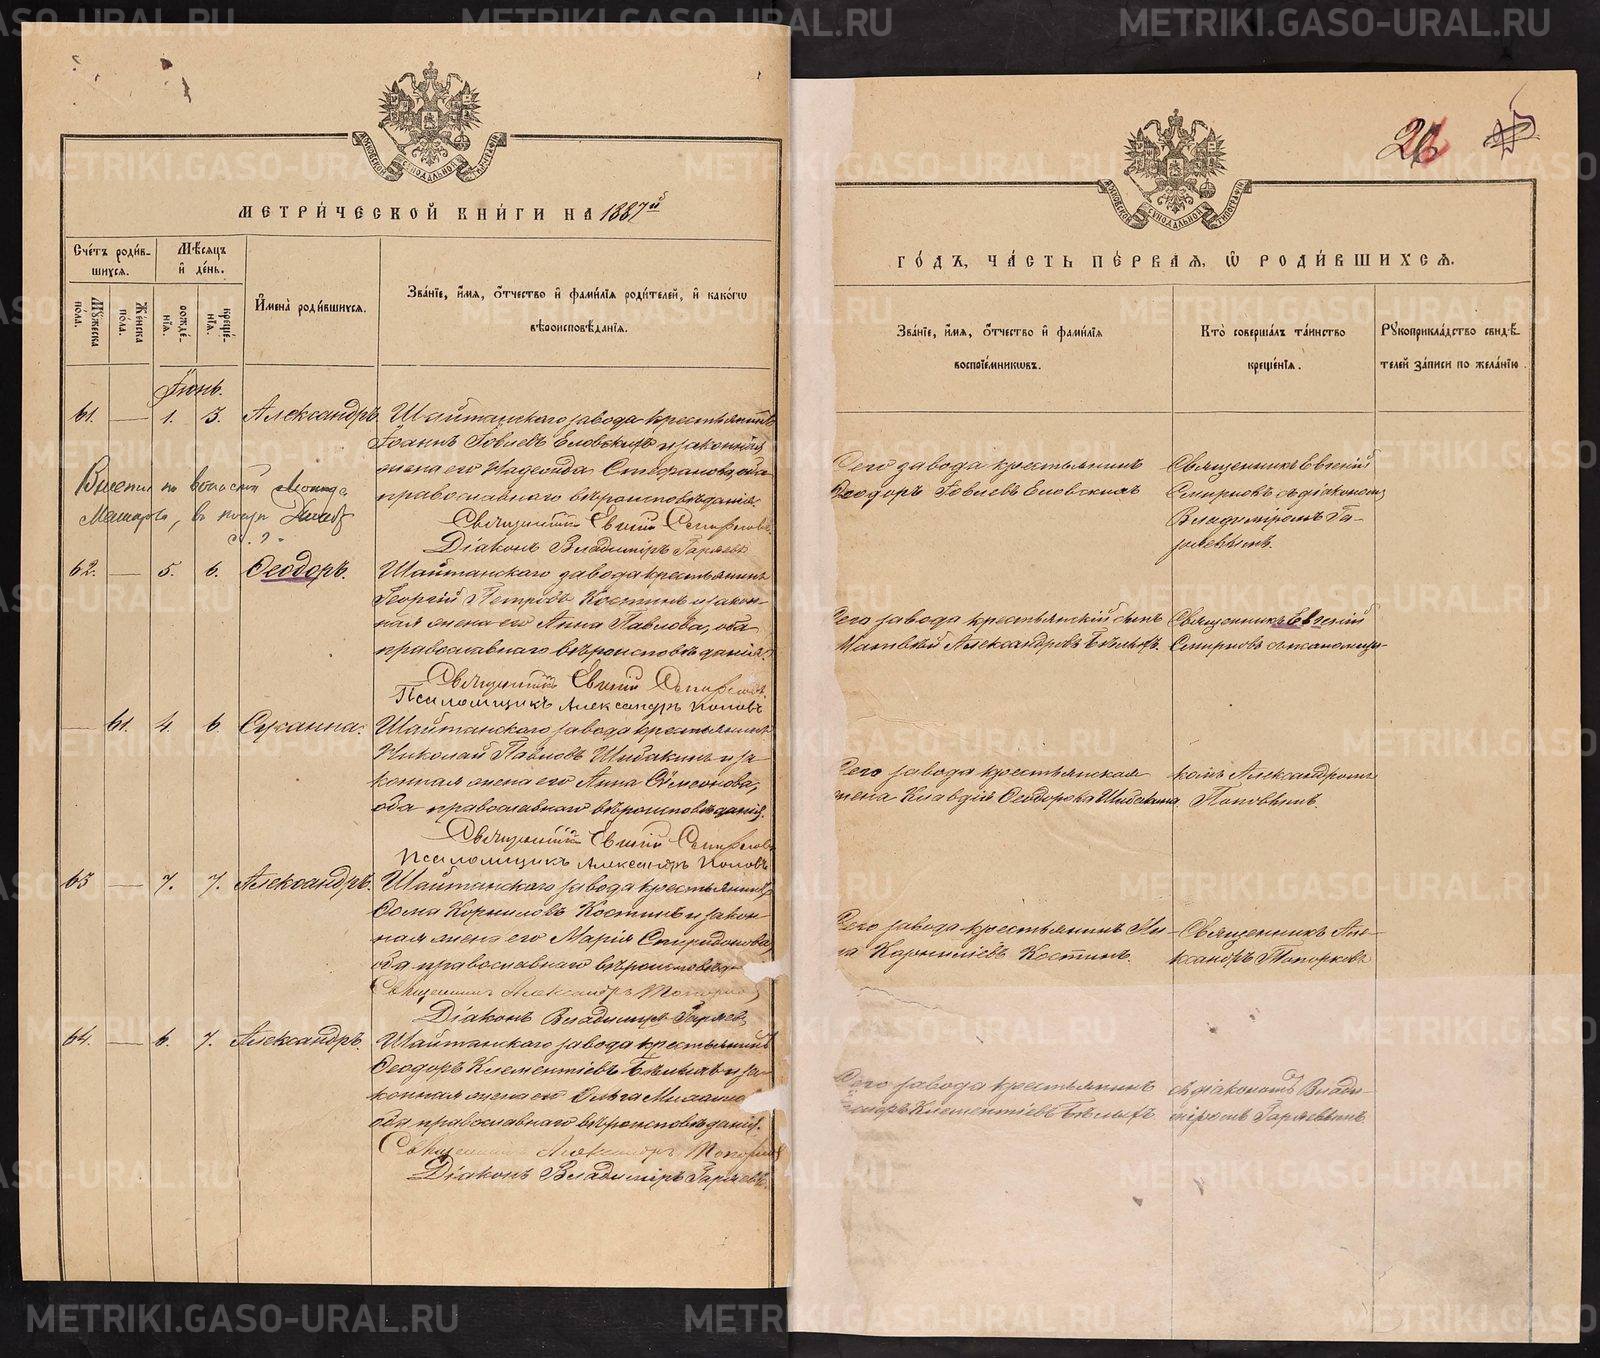 МЕТРИ́ЧЕСКОЙ КНИ́ГИ НА 1887й
Сче́тъ роди́в-
шихся.
Мѣ́сяцъ
и҆ де́нь.
Мꙋжеска
по́ла.
Же́нска
по́ла.
рожде́-
нїѧ.
креще́-
нїѧ.
И҆мена̀ роди́вшихся.
Зва́нїе, и҆́мѧ, ѻ҆́тчество и҆ фами́лїѧ роди́телей, и҆ како́гѡ
вѣроисповѣ́данїѧ.
Іюнь.
61. — 1. 3. Александръ. Шайтанскаго завода крестьянинъ
Іоаннъ Іовлевъ Еловскихъ и законная
жена его Надежда Стефанова, оба
православнаго вѣроисповѣданія.
Священникъ Евгеній Смирновъ
Діаконъ Владиміръ Гаряевъ
62. — 5. 6. Ѳеодоръ. Шайтанскаго завода крестьянинъ
Георгій Петровъ Костинъ и закон-
ная жена его Анна Павлова, оба
православнаго вѣроисповѣданія.
Священникъ Евгеній Смирновъ
Псаломщикъ Александръ Поповъ
— 61. 4. 6. Сусанна. Шайтанскаго завода крестьянинъ
Николай Павловъ Шибакинъ и за
конная жена его Анна Сѷмеонова,
оба православнаго вѣроисповѣданія.
Священникъ Евгеній Смирновъ
Псаломщикъ Александръ Поповъ
63 — 7. 7. Александръ. Шайтанскаго завода крестьянинъ
Ѳома Корниловъ Костинъ и закон-
ная жена его Марія Спиридонова,
оба православнаго вѣроисповѣда
Священникъ Александръ Топорковъ
Діаконъ Владиміръ Гаряевъ
64. — 6. 7. Александръ. Шайтанскаго завода крестьянинъ
Ѳеодоръ Клементіевъ Бѣлыхъ и за-
конная жена его Ольга
оба православнаго вѣроисповѣданія.
Священникъ Александръ Топорковъ
Діаконъ Владиміръ Гаряевъ.
26
ГО́ДЪ, ЧА́СТЬ ПЕ́РВАѦ, Ѽ РОДИ́ВШИХСѦ.
Зва́нїе, и҆́мѧ, ѻ҆́тчество и҆ фами́лїѧ
воспрїе́мникѡвъ.
Кто̀ соверша́лъ та́инство
креще́нїѧ.
Рꙋкоприкла́дство свидѣ́-
телей за́писи по жела́нїю.
Сего завода крестьянинъ
Ѳеодоръ Іовлевъ Еловскихъ
Священникъ Евгеній
Смирновъ съ діакономъ
Владиміромъ Га-
ряевымъ.
Сего завода крестьянскій сынъ
Матвѣй Александровъ Бѣлыхъ.
Священникъ Евгеній
Смирновъ съ псаломщи-
Сего завода крестьянская
жена Клавдія Ѳеодорова Шибакина.
комъ Александромъ
Поповымъ.
Сего завода крестьянинъ
Корниліевъ Костинъ.
Священникъ Але-
ксандръ Топорковъ
Сего завода крестьянинъ
Клементіевъ Бѣлыхъ
съ діакономъ Влади-
міромъ Гаряевымъ.
METRIKI.GASO-URAL.RU